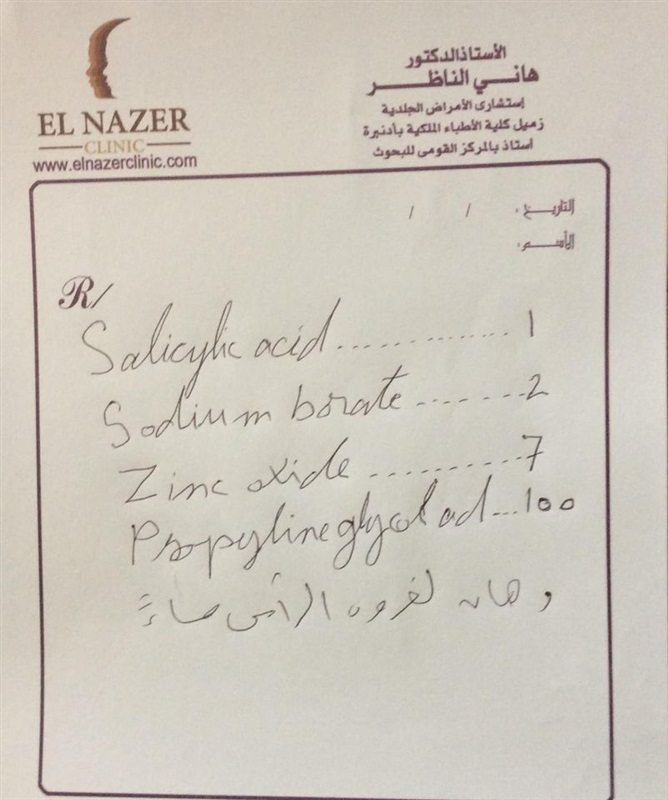 EL NAZER
CLINIC
www.elnazerclinic.com
الأستاذالدكتور
هانـي الناظـــر
إستشارى الأمراض الجلدية
زميل كلية الأطباء الملكية بأدنبرة
أستاذ بالمركز القومى للبحوث
التاريـــخ: / /
الأســـم:
R/
Salicylic acid............. 1
Sodium borate.......2
Zinc oxide..........7
Propylineglycol ad...100
دهان لفروه الرأس مساءً